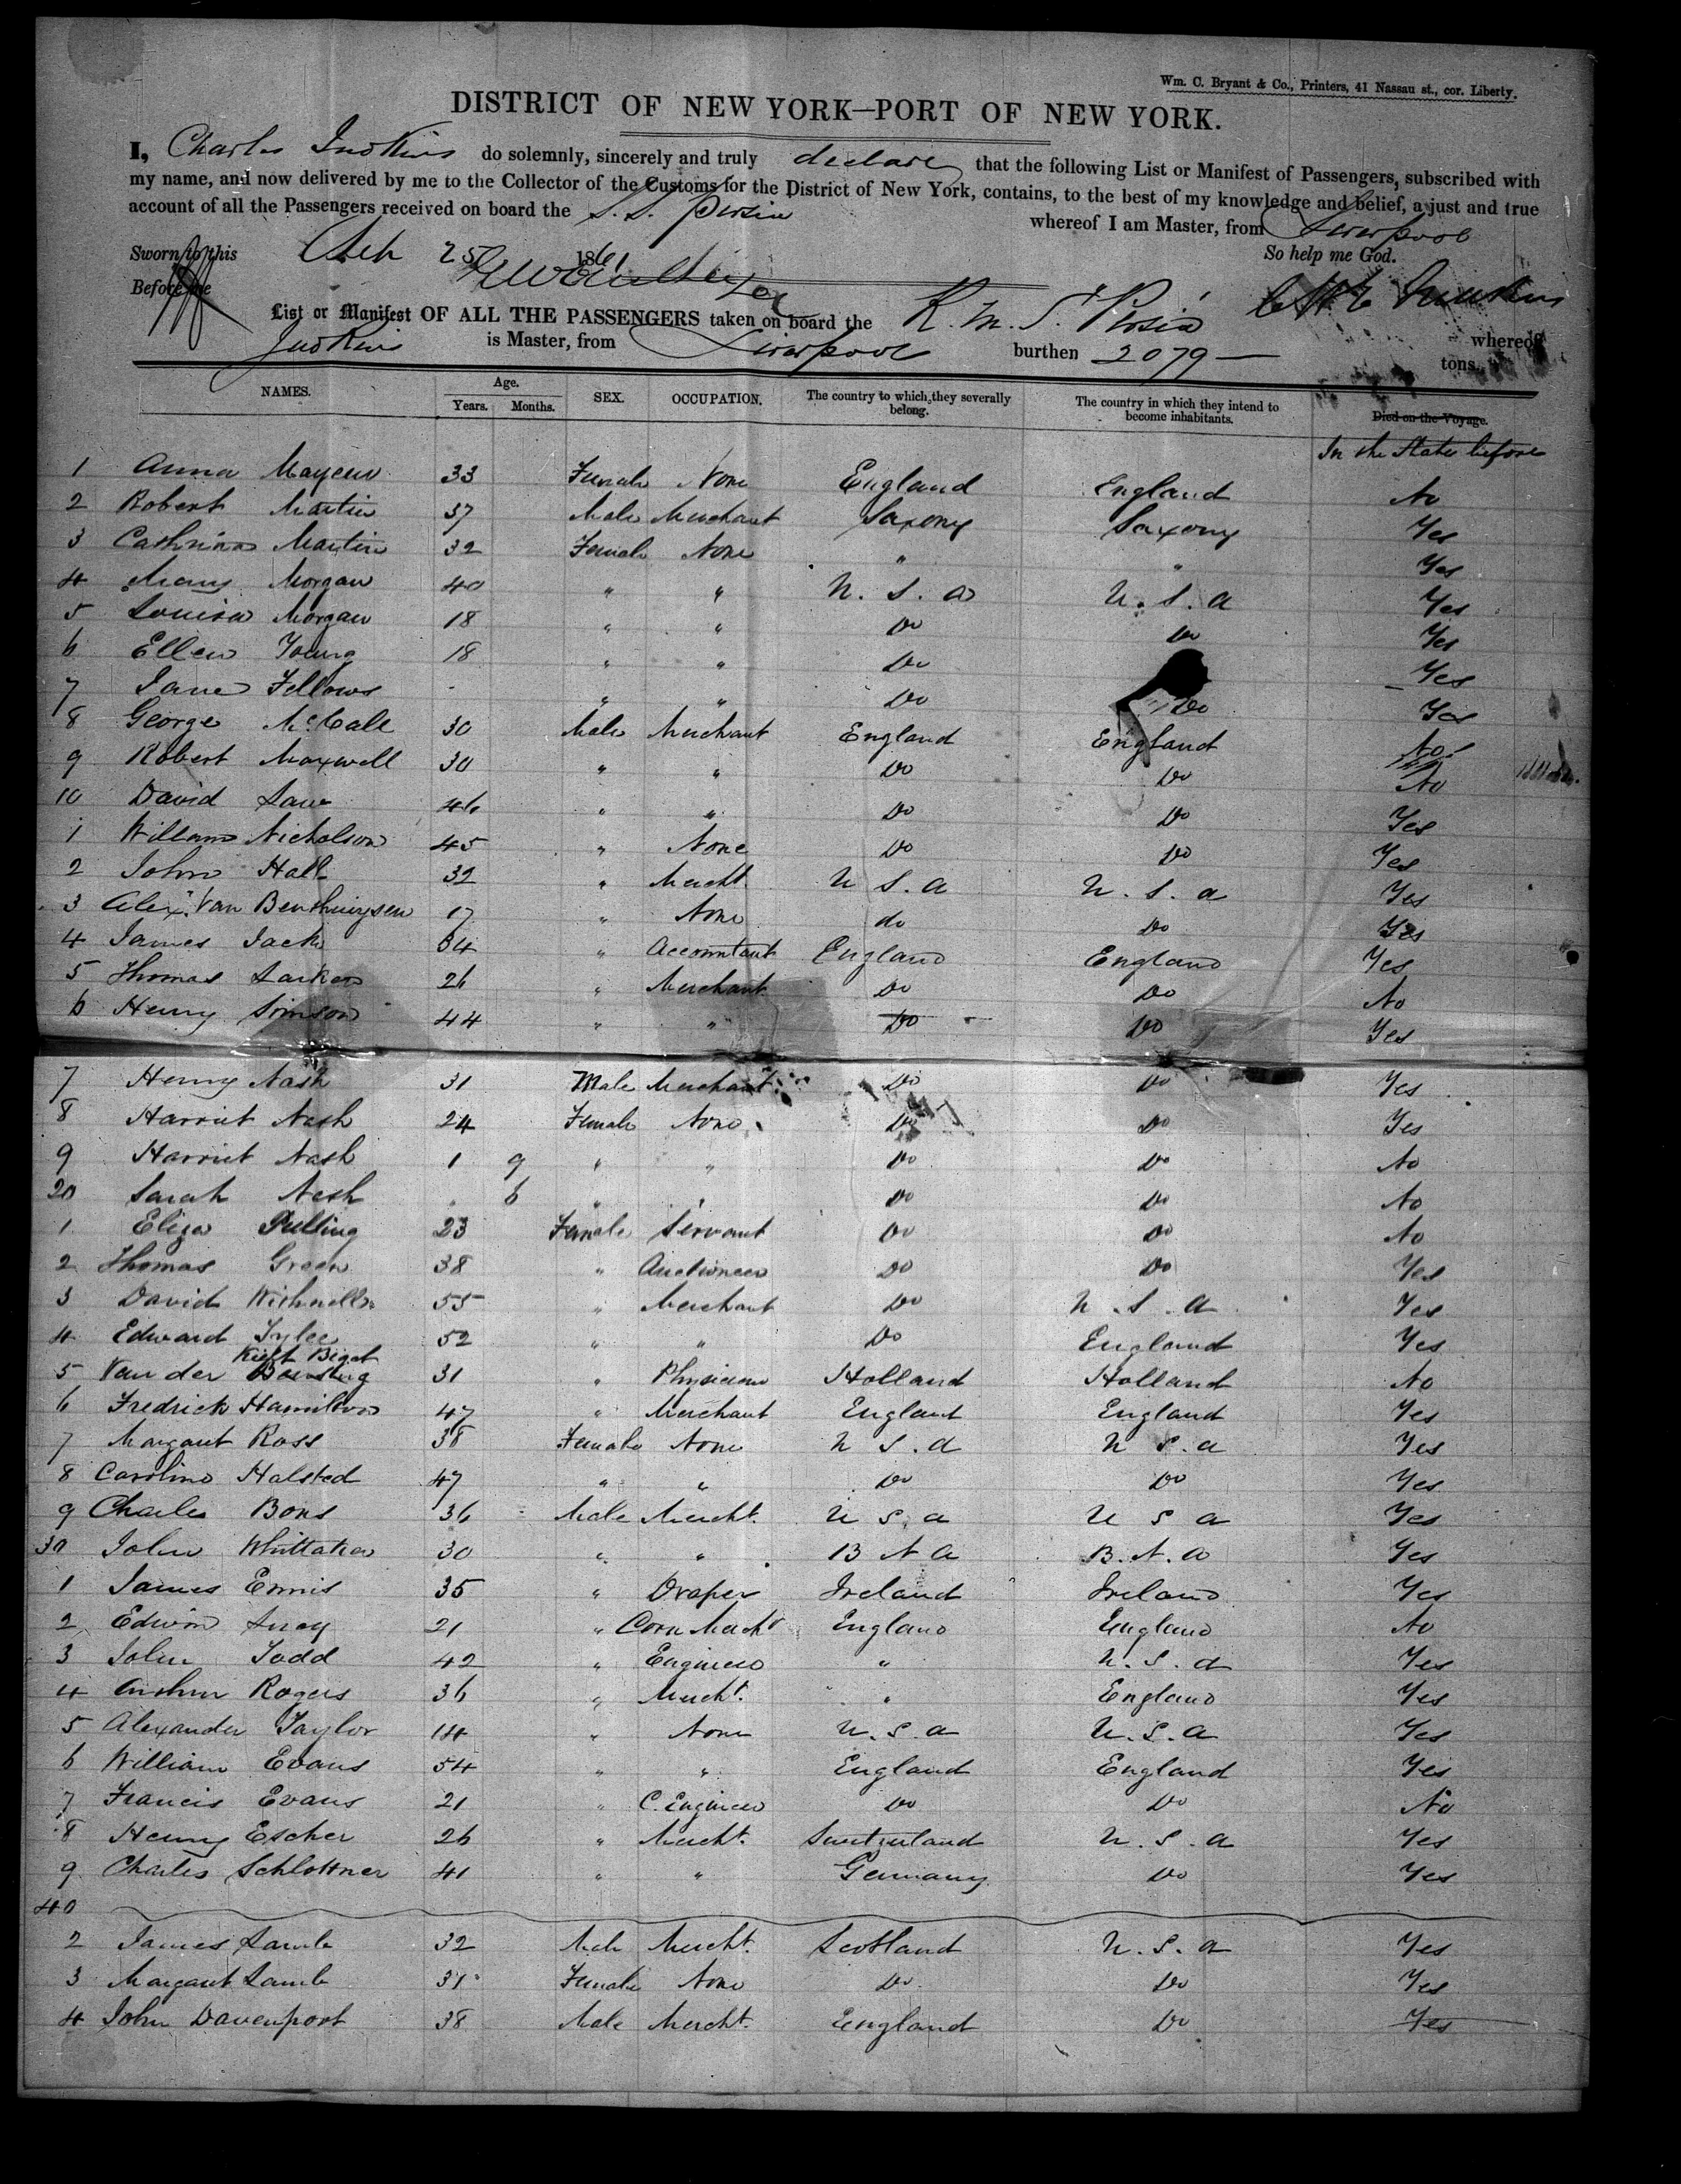 Wm. C. Bryant & Co., Printers, 41 Nassau st., cor. Liberty.
DISTRICT OF NEW YORK—PORT OF NEW YORK.
I, Charles Judkins do solemnly, sincerely and truly declare that the following List or Manifest of Passengers, subscribed with
my name, and now delivered by me to the Collector of the Customs for the District of New York, contains, to the best of my knowledge and belief, a just and true
account of all the Passengers received on board the S. S. Persia whereof I am Master, from Liverpool
Sworn to this 25 1861 So help me God.
Before me
List or Manifest OF ALL THE PASSENGERS taken on board the R. M. S. Persia whereof
Judkins is Master, from Liverpool burthen 2079 — tons.
NAMES. Age. Years. Months. SEX. OCCUPATION. The country to which they severally belong. The country in which they intend to become inhabitants. Died on the Voyage.
In the States before
1 Anna 33 Female None England England No
2 Robert Martin 37 Male Merchant Saxony Saxony Yes
3 Martin 32 Female None " " Yes
4 Mary Morgan 40 " " U. S. a U. S. a Yes
5 Louisa Morgan 18 " " Do Do Yes
6 Ellen Young 18 " " Do Yes
7 Jane Fellows - " " Do Do Yes
8 George McCall 30 Male Merchant England England No
9 Robert Maxwell 30 " " Do Do No
10 David 46 " " Do Do Yes
1 William Nicholson 45 " None Do Do Yes
2 John Hall 32 " Mercht. U S. a U. S. a Yes
3 Alex. Van Benthuysen 17 " None do Do Yes
4 James Jack 34 " Accountant England England Yes
5 Thomas 26 " Merchant Do Do No
6 Henry Simson 44 " " Do Do Yes
7 Henry Nash 31 Male Merchant Do Do Yes
8 Harriet Nash 24 Female None Do Do Yes
9 Harriet Nash 1 9 " " Do Do No
20 Sarah Nash " 6 " " Do Do No
1 Eliza Pulling 23 Female Servant Do Do No
2 Thomas Green 38 " Auctioneer Do Do Yes
3 David 55 " Merchant Do U. S. a Yes
4 Edward Tylee 52 " " Do England Yes
5 Van der 31 " Physician Holland Holland No
6 Fredrick Hamilton 47 " Merchant England England Yes
7 Margaret Ross 38 Female None U S. a U S. a Yes
8 Caroline Halsted 47 " " Do Do Yes
9 Charles Bons 36 Male Mercht. U S. a U S a Yes
30 John Whittaker 30 " " B N A B. N. A Yes
1 James Ennis 35 " Draper Ireland Ireland Yes
2 Edwin 21 " Corn Mercht England England No
3 John Todd 42 " Engineer " U. S. a Yes
4 Arthur Rogers 36 " Mercht. " England Yes
5 Alexander Taylor 14 " None U. S. a U. S. a Yes
6 William Evans 54 " " England England Yes
7 Francis Evans 21 " C. Engineer Do Do No
8 Henry Escher 26 " Mercht. Switzerland U. S. a Yes
9 Charles Schlottner 41 " " Germany Do Yes
40
2 James Lamb 32 Male Mercht. Scotland U. S. a Yes
3 Margaret Lamb 31 Female None Do Do Yes
4 John Davenport 38 Male Mercht. England Do Yes